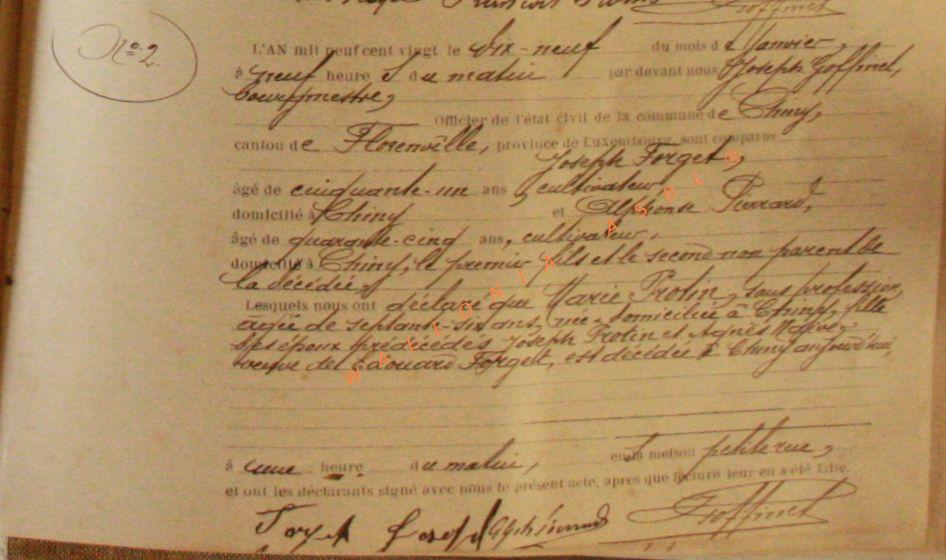 Goffinet
No. 2.
L'AN mil neuf cent vingt le dix-neuf du mois de Janvier,
à neuf heures du matin par devant nous Joseph Goffinet,
bourgmestre,
Officier de l'état civil de la commune de Chiny,
canton de Florenville, province de Luxembourg, sont comparus
Joseph Forget,
âgé de cinquante-un ans, cultivateur,
domicilié à Chiny et Alphonse Pierrard,
âgé de quarante-cinq ans, cultivateur,
domicilié à Chiny, le premier fils et le second non parent de
la décédée,
Lesquels nous ont déclaré que Marie Protin, sans profession,
âgée de septante-six ans, née et domiciliée à Chiny, fille
des époux prédécédés Joseph Protin et Agnès
veuve de Edouard Forget, est décédée à Chiny aujourd'hui,
à une heure du matin, en sa maison petite rue,
et ont les déclarants signé avec nous le présent acte, après que lecture leur en a été faite.
Forget Joseph Alph Pierrard Goffinet
WALLONIA ASBL ©